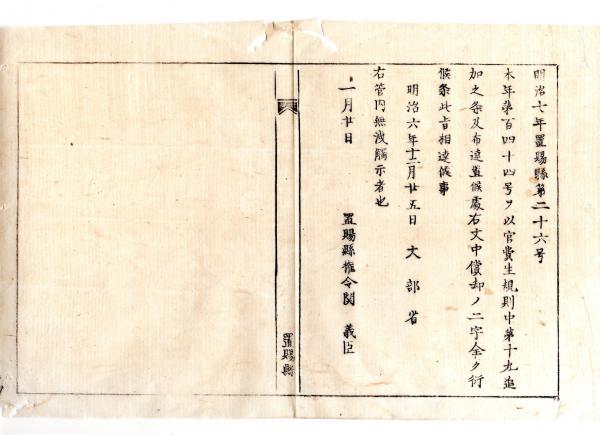 明治七年置賜縣第二十六号
本年第百四十四号ヲ以官費生規則中第十九追
加之条及布達置候處右文中償却ノ二字全ク衍
候条此旨相達候事
明治六年十二月廿五日 文部省
右管内無洩觸示者也
一月廿日 置賜縣権令関 義臣
置賜縣